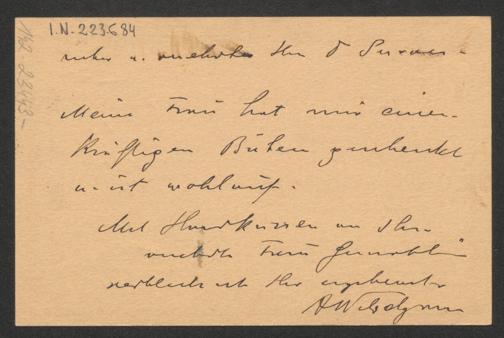 I.N. 223.684
u. verehrter Herr D
Meine Frau hat mir einen
kräftigen Buben geschenkt
u. ist wohlauf.
Mit Handküssen an Ihre
verehrte Frau Gemahlin
verbleibe ich Ihr ergebenster